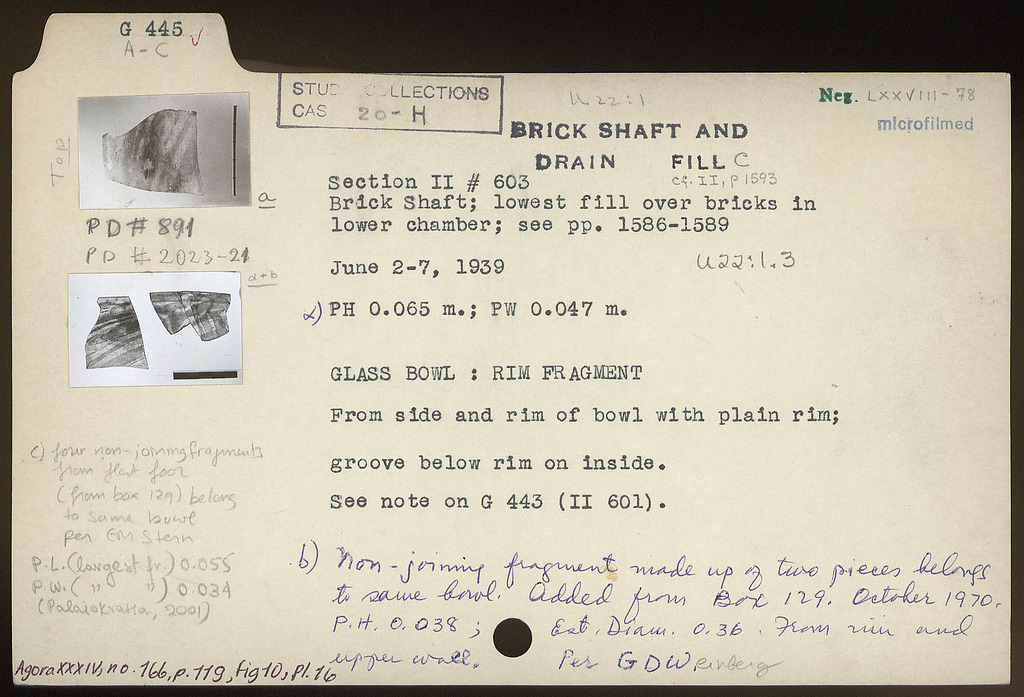 G 445 ✓
A-C
STUD COLLECTIONS
CAS 20-H
U 22:1
Neg. LXXVIII-78
microfilmed
BRICK SHAFT AND
DRAIN FILL C
cf. II, p 1593
Top
a
PD# 891
PD # 2023-21
a+b
Section II # 603
Brick Shaft; lowest fill over bricks in
lower chamber; see pp. 1586-1589
June 2-7, 1939
U22:1.3
a) PH 0.065 m.; PW 0.047 m.
GLASS BOWL : RIM FRAGMENT
From side and rim of bowl with plain rim;
groove below rim on inside.
See note on G 443 (II 601).
c) four non-joining fragments
from flat foot
(from box 129) belong
to same bowl
per EM Stern
P.L. (largest fr.) 0.055
P.W. ( " " ) 0.034
(Palaiokratia, 2001)
b) Non-joining fragment made up of two pieces belongs
to same bowl. Added from Box 129. October 1970.
P.H. 0.038; Est. Diam. 0.36. From rim and
upper wall. Per GDWeinberg
Agora XXXIV, no. 166, p. 119, Fig 10, Pl. 16